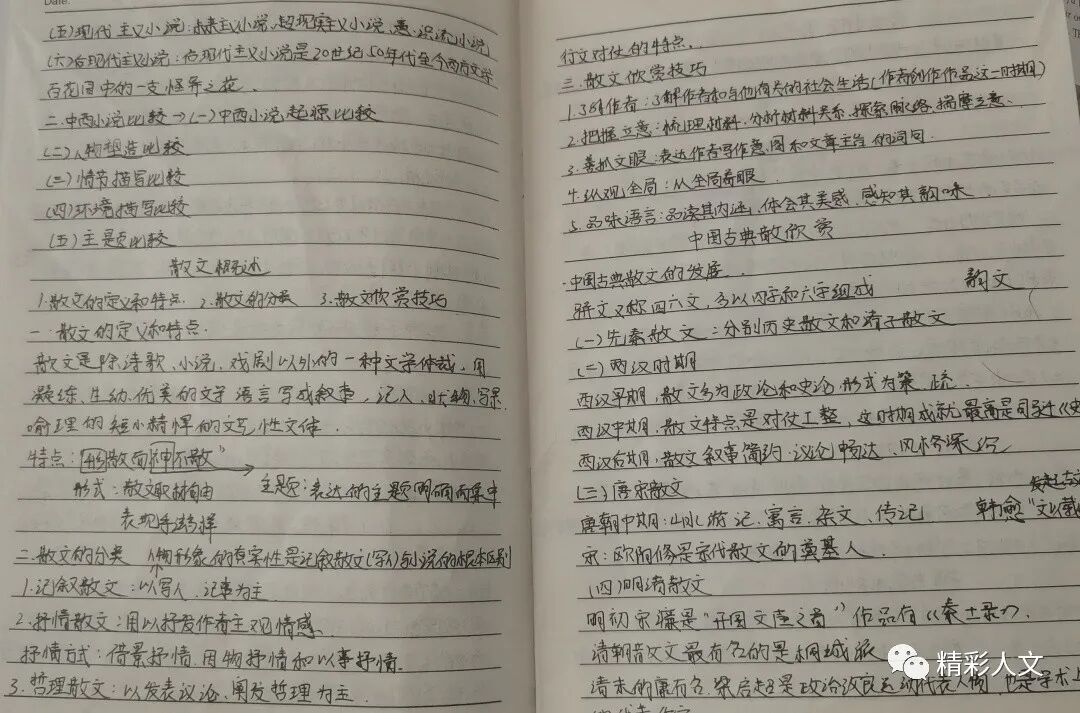 Date:
(五)现代主义小说:未来主义小说、超现实主义小说、意识流小说
(六)后现代主义小说:后现代主义小说是20世纪50年代至今西方文学
百花园中的一支怪异之花.
二.中西小说比较→(一)中西小说起源比较
(二)人物塑造比较
(三)情节描写比较
(四)环境描写比较
(五)主题比较
散文概述
1.散文的定义和特点. 2.散文的分类 3.散文欣赏技巧
一.散文的定义和特点.
散文是除诗歌、小说、戏剧以外的一种文学体裁,用
凝练、生动、优美的文学语言写成叙事、记人、状物、写景、
喻理的短小精悍的文艺性文体.
特点:"形散而神不散"
形式:散文取材自由 主题:表达的主题明确而集中
表现手法多样
二.散文的分类 人物形象的真实性是记叙散文(写人)与小说的根本区别
1.记叙散文:以写人、记事为主.
2.抒情散文:用以抒发作者主观情感.
抒情方式:借景抒情、因物抒情和以事抒情.
3.哲理散文:以发表议论、阐发哲理为主.
行文对仗的特点.
三.散文欣赏技巧
1.了解作者:了解作者和与他有关的社会生活(作者创作作品这一时期)
2.把握立意:梳理材料,分析材料关系,探索脉络,揣摩立意.
3.善抓文眼:表达作者写作意图和文章主旨的词句.
4.纵观全局:从全局着眼.
5.品味语言:品读其内涵,体会其美感,感知其韵味.
中国古典散欣赏
中国古典散文的发展.
骈文又称四六文,多以四字和六字组成 韵文
(一)先秦散文:分别历史散文和诸子散文
(二)两汉时期
西汉早期,散文多为政论和史论,形式为策、疏.
西汉中期,散文特点是对仗工整,这时期成就最高是司马迁《史
西汉后期,散文叙事简约,议论畅达,风格深沉
(三)唐宋散文
唐朝中期:山水游记、寓言、杂文、传记 韩愈"文以载
宋:欧阳修是宋代散文的奠基人.
(四)明清散文
明初宋濂是"开国文臣之首" 作品有《秦士录》.
清朝散文最有名的是桐城派
清末的康有为、梁启超是政治改良运动代表人物,也是学术上
精彩人文